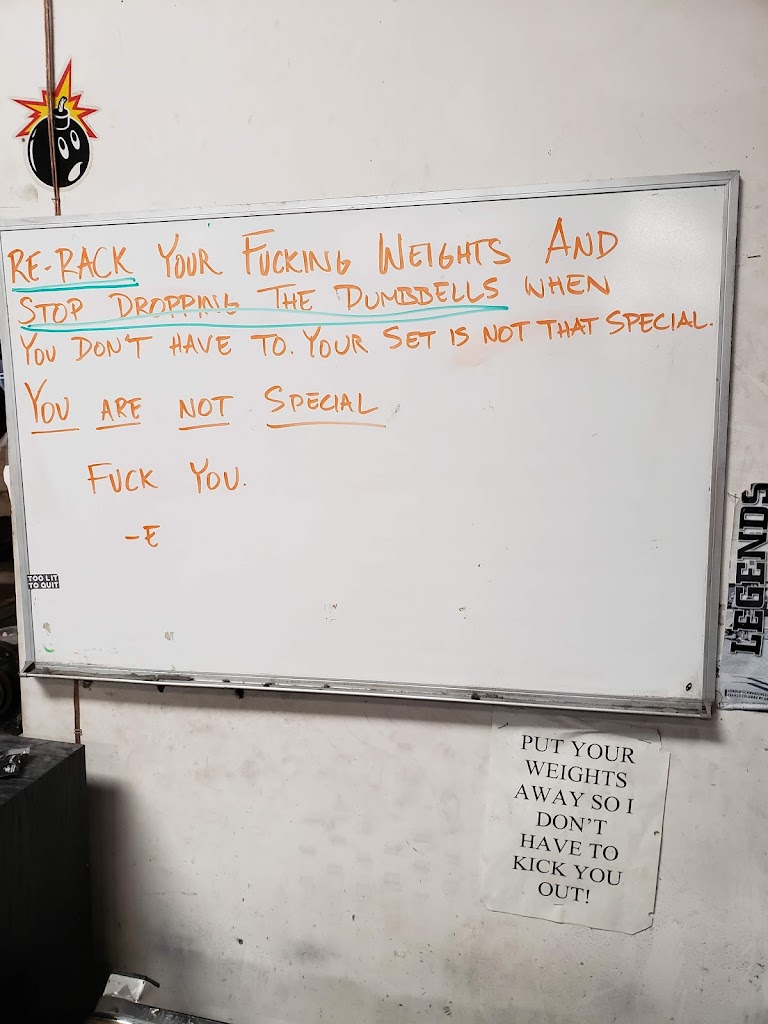 RE-RACK YOUR FUCKING WEIGHTS AND
STOP DROPPING THE DUMBBELLS WHEN
YOU DON'T HAVE TO. YOUR SET IS NOT THAT SPECIAL.
YOU ARE NOT SPECIAL
FUCK YOU.
-E
TOO LIT
TO QUIT
LEGENDS
PUT YOUR
WEIGHTS
AWAY SO I
DON'T
HAVE TO
KICK YOU
OUT!